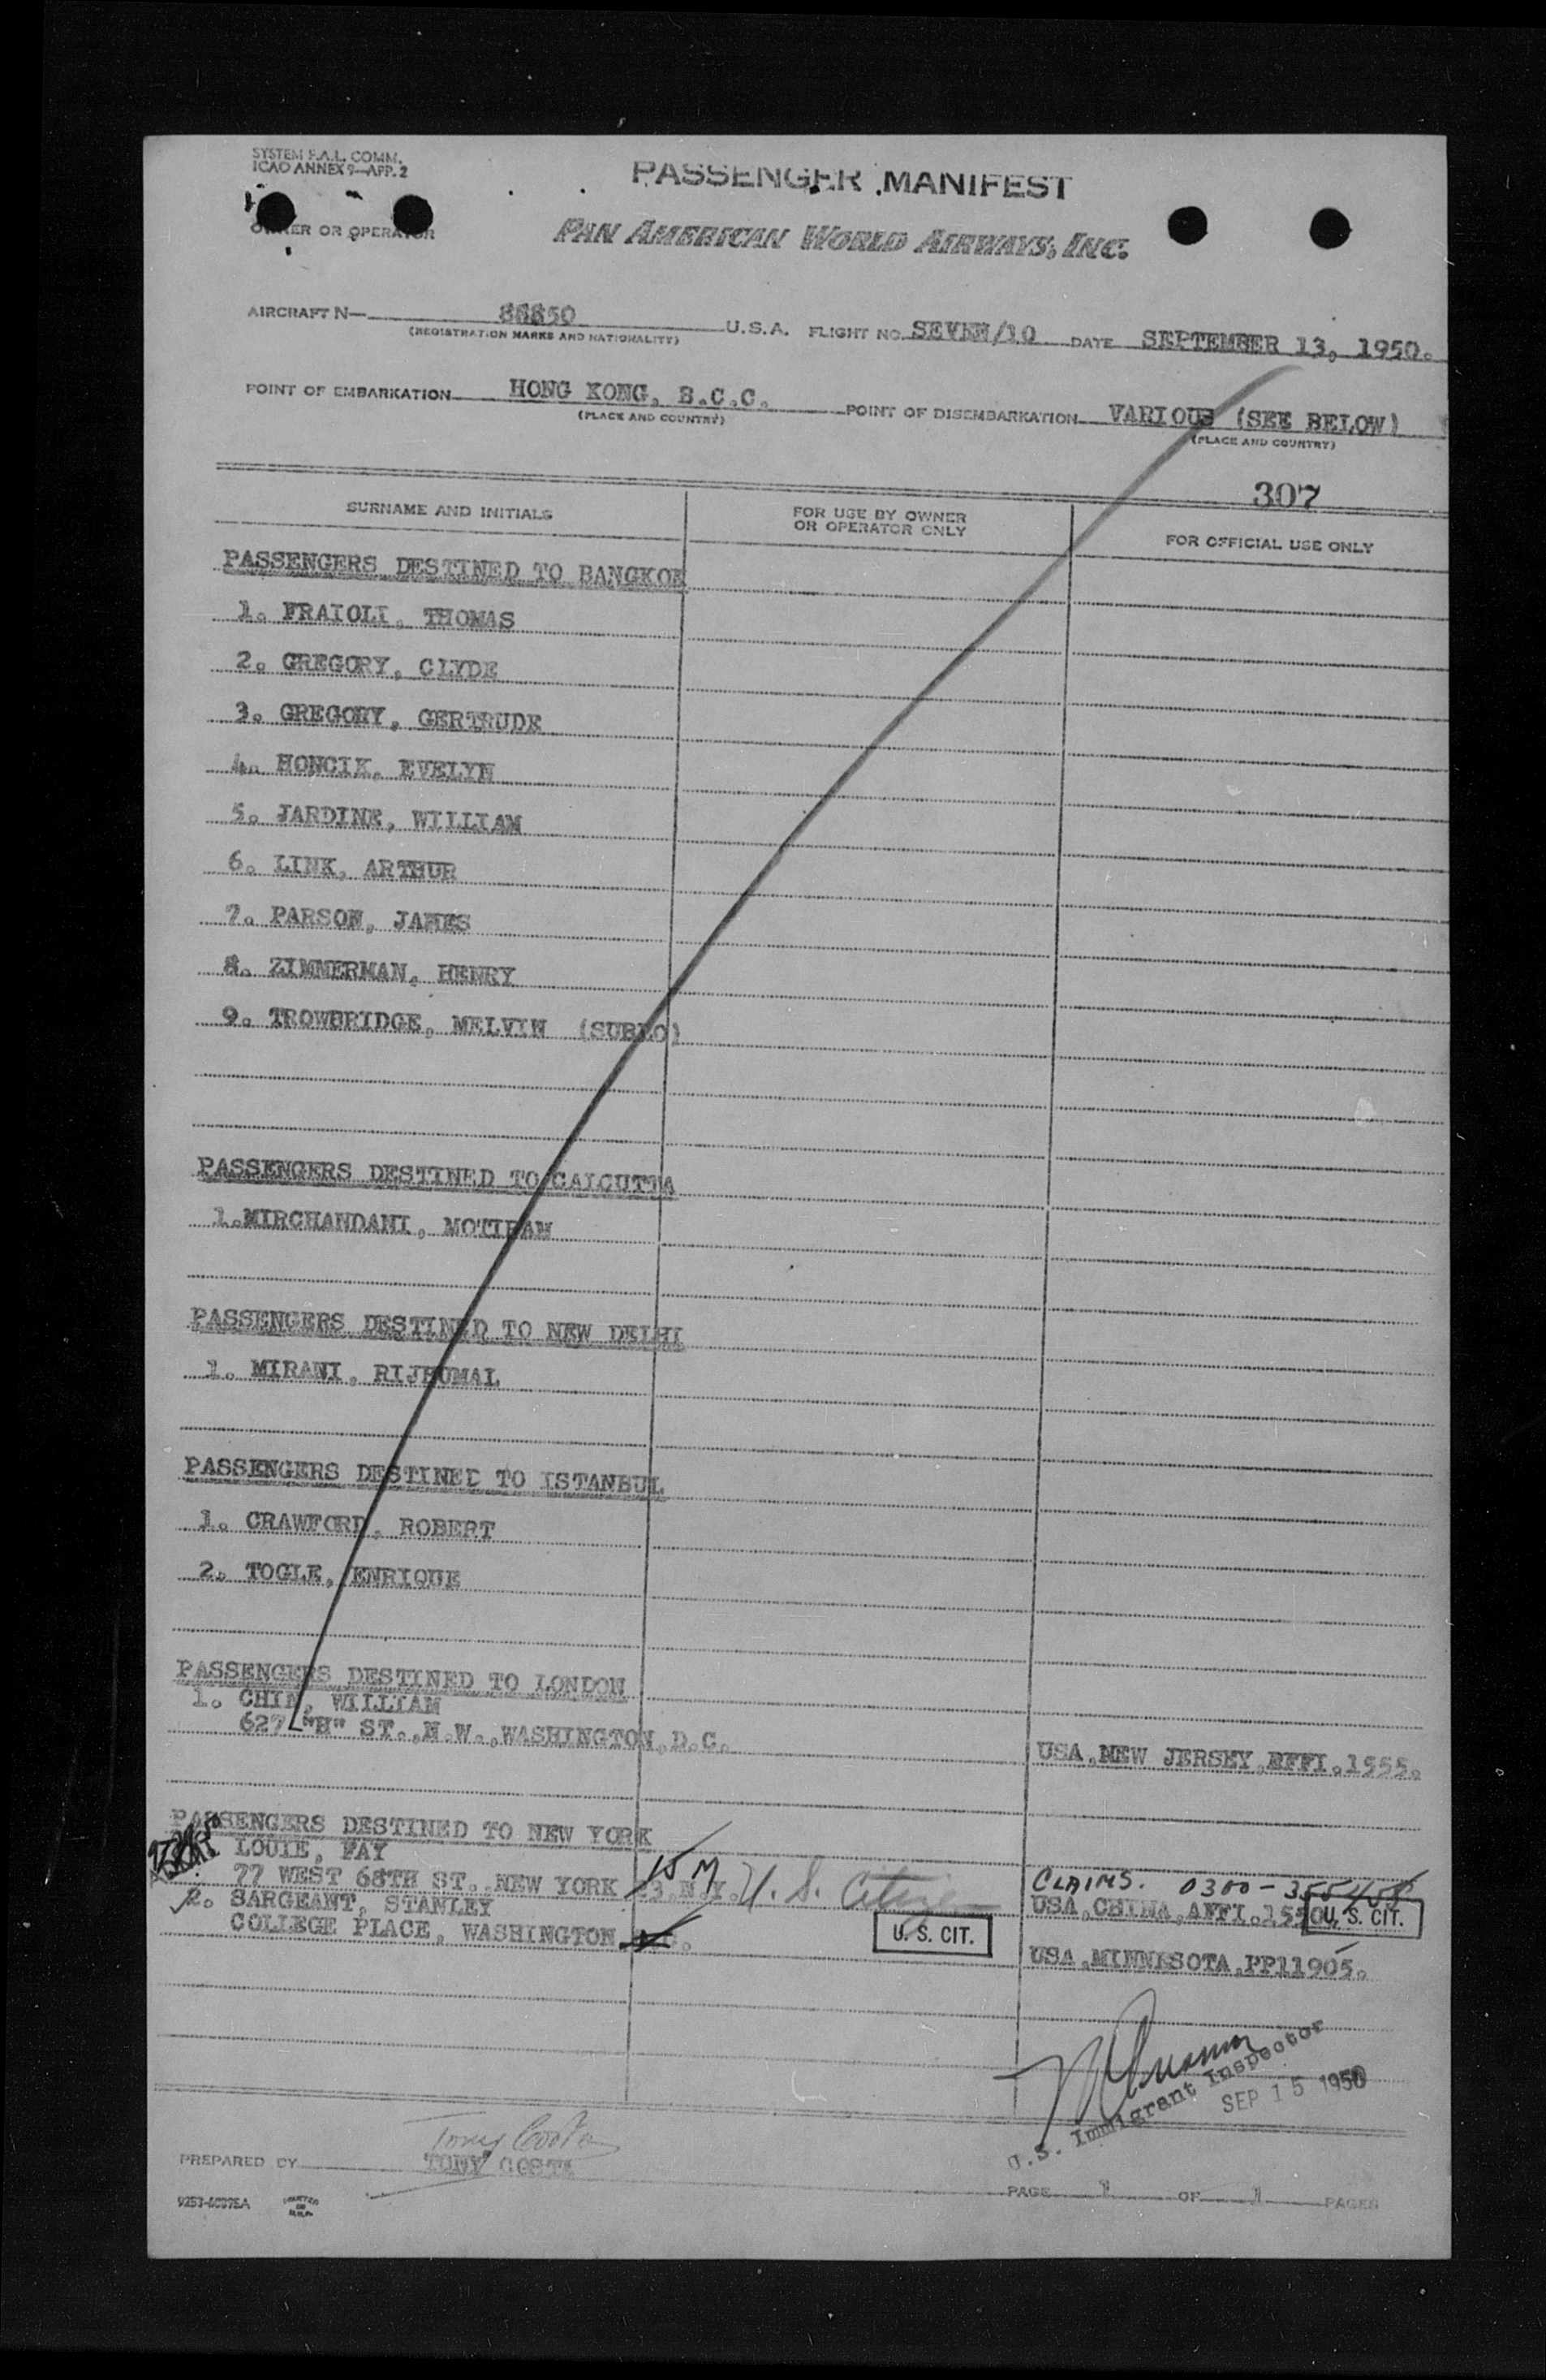 SYSTEM F.A.L. COMM.
ICAO ANNEX 9—APP. 2
PASSENGER MANIFEST
OWNER OR OPERATOR
PAN AMERICAN WORLD AIRWAYS, INC.
AIRCRAFT N— 88850 U.S.A. FLIGHT NO. SEVEN/10 DATE SEPTEMBER 13, 1950.
(REGISTRATION MARKS AND NATIONALITY)
POINT OF EMBARKATION HONG KONG, B.C.C. POINT OF DISEMBARKATION VARIOUS (SEE BELOW)
(PLACE AND COUNTRY) (PLACE AND COUNTRY)
307
SURNAME AND INITIALS FOR USE BY OWNER OR OPERATOR ONLY FOR OFFICIAL USE ONLY
PASSENGERS DESTINED TO BANGKOK
1. FRAIOLI, THOMAS
2. GREGORY, CLYDE
3. GREGORY, GERTRUDE
4. HONCIK, EVELYN
5. JARDINE, WILLIAM
6. LINK, ARTHUR
7. PARSON, JAMES
8. ZIMMERMAN, HENRY
9. TROWBRIDGE, MELVIN (SUBLO)
PASSENGERS DESTINED TO CALCUTTA
1. MIRCHANDANI, MOTIRAM
PASSENGERS DESTINED TO NEW DELHI
1. MIRANI, RIJHUMAL
PASSENGERS DESTINED TO ISTANBUL
1. CRAWFORD, ROBERT
2. TOGLE, ENRIQUE
PASSENGERS DESTINED TO LONDON
1. CHIN, WILLIAM
627 "H" ST., N.W., WASHINGTON, D.C. USA, NEW JERSEY, AFFI. 1555.
PASSENGERS DESTINED TO NEW YORK
LOUIE, FAY
77 WEST 68TH ST. NEW YORK 23, N.Y. 15 M U. S. Citizen CLAIMS. 0300-355458
USA, CHINA, AFFI. 1550 U. S. CIT.
2. SARGEANT, STANLEY
COLLEGE PLACE, WASHINGTON U. S. CIT.
USA, MINNESOTA, PP11905.
U.S. Immigrant Inspector
SEP 15 1950
Tony Costa
PREPARED BY TONY COSTA
PAGE 1 OF 1 PAGES